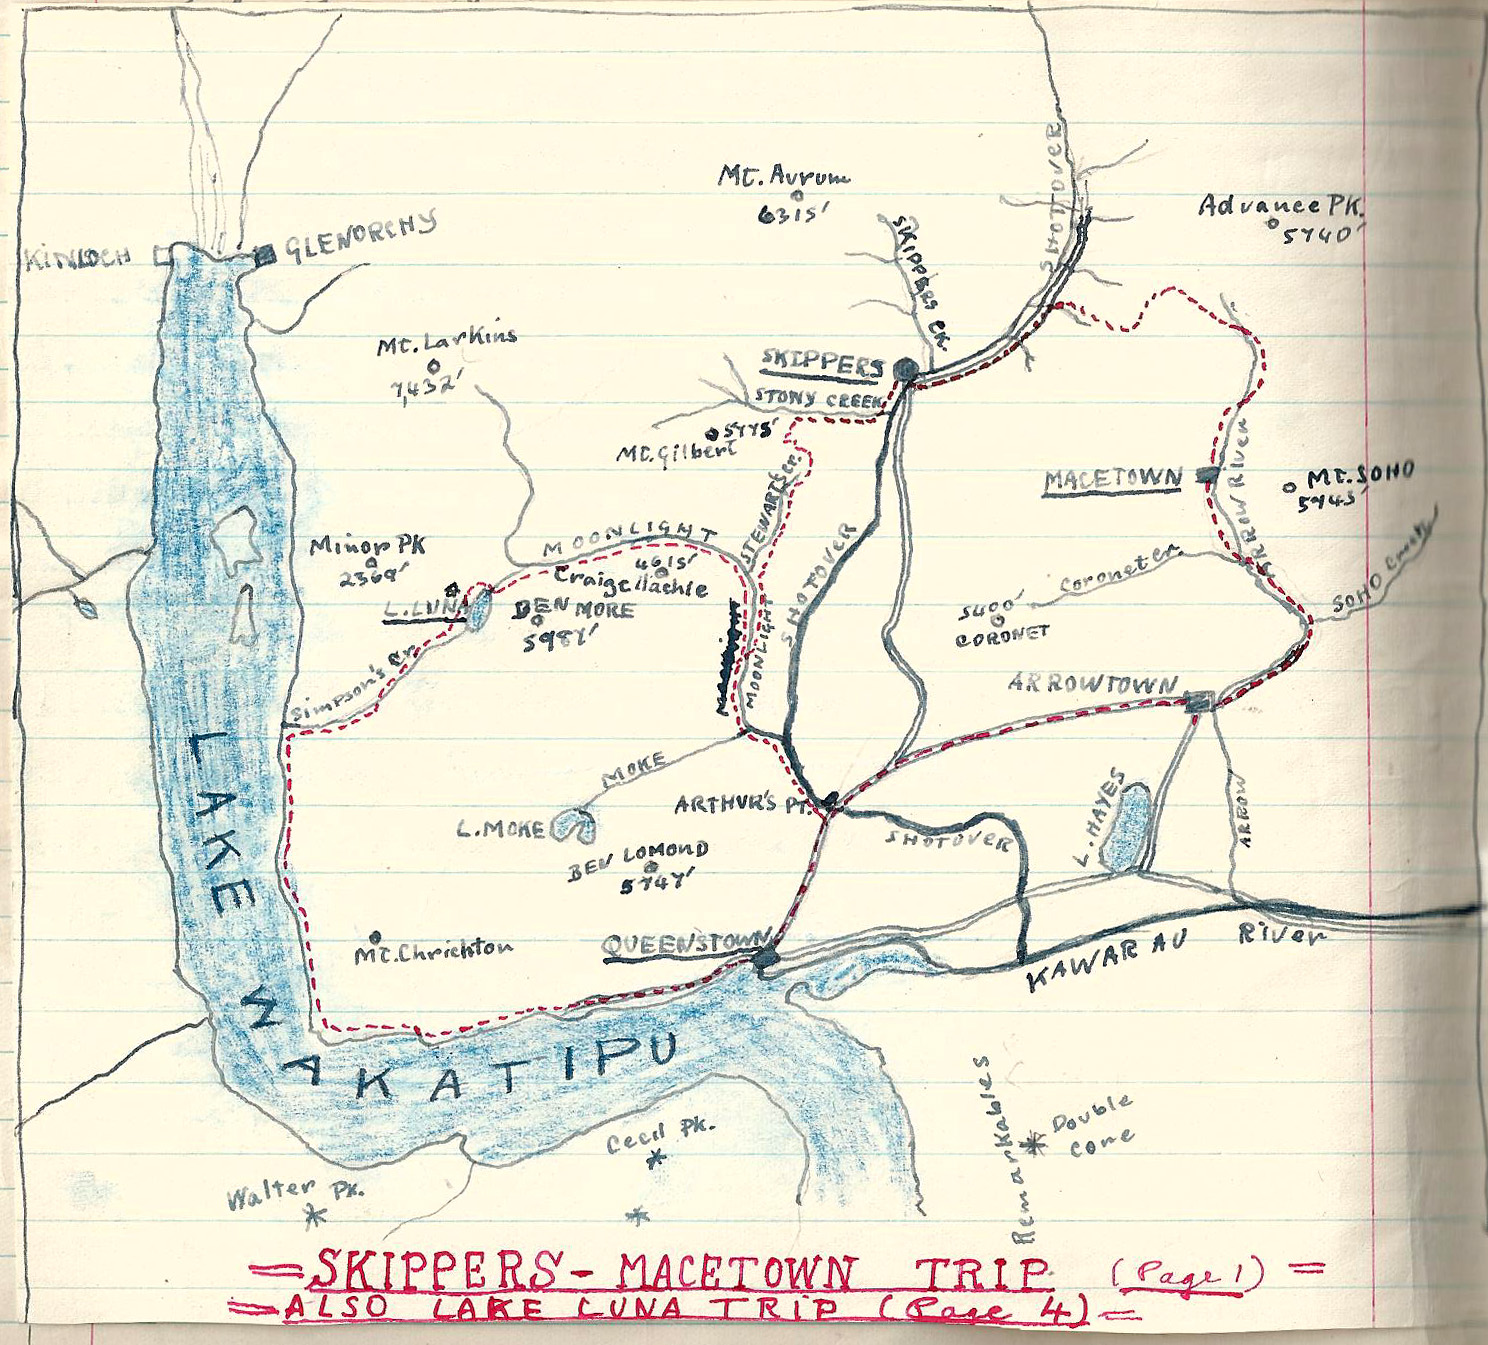 SHOTOVER
Mt. Aurum
6315'
Advance PK.
5740'
SKIPPERS CK.
KINLOCH
GLENORCHY
Mt. Larkins
7,432'
SKIPPERS
STONY CREEK
5775'
Mt. Gilbert
STEWARTS Cr.
MACETOWN
ARROW River
Mt. SOHO
5745'
MOONLIGHT
Minor PK
2369'
4615'
Craigellachie
L. LUNA
BEN MORE
5987'
MOONLIGHT
SHOTOVER
Coronet Cr.
5400'
CORONET
ARROW
SOHO Creek
Simpson's Cr.
ARROWTOWN
MOKE
L. MOKE
ARTHUR'S PT.
SHOTOVER
L. HAYES
ARROW
BEN LOMOND
5747'
Mt. Chrichton
QUEENSTOWN
KAWARAU River
LAKE WAKATIPU
Cecil Pk.
Walter Pk.
Remarkables
Double
cone
=SKIPPERS - MACETOWN TRIP (Page 1)=
=ALSO LAKE LUNA TRIP (Page 4)=